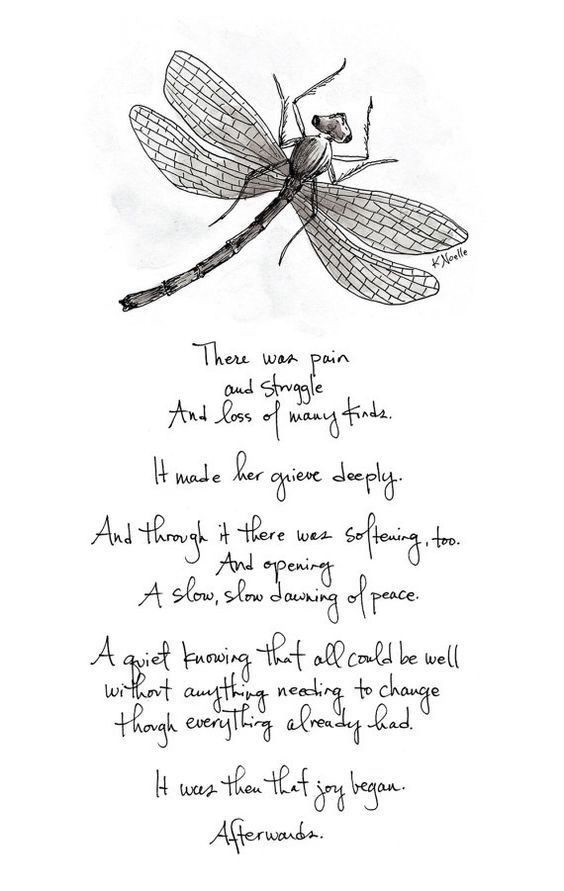 K Noelle
There was pain
and struggle
And loss of many kinds.
It made her grieve deeply.
And through it there was softening, too.
And opening
A slow, slow dawning of peace.
A quiet knowing that all could be well
without anything needing to change
though everything already had.
It was then that joy began.
Afterwards.